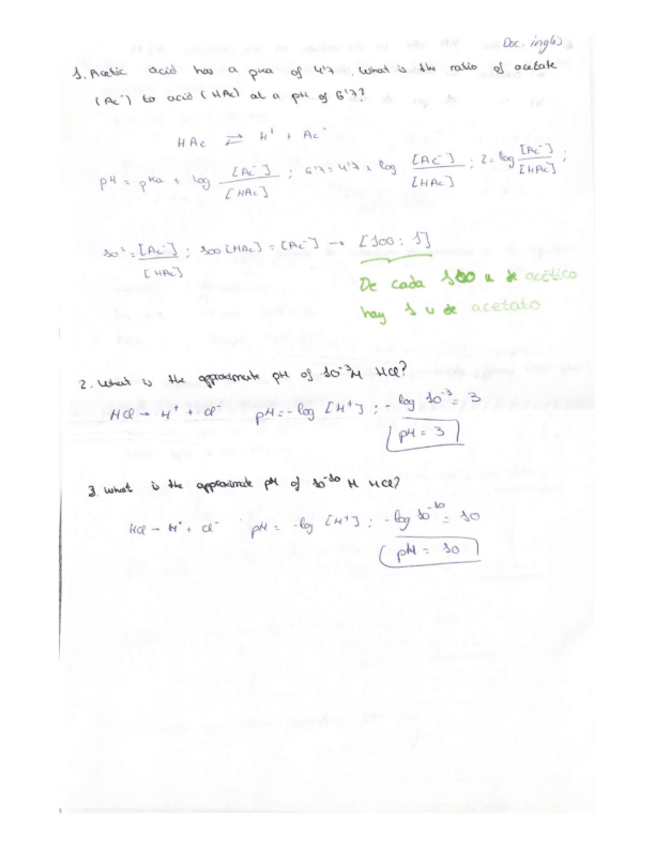 Doc. inglés
1. Acetic acid has a pka of 4'7. What is the ratio of acetate
(Ac⁻) to acid (HAc) at a pH of 6'7?
HAc ⇄ H⁺ + Ac⁻
pH = pKa + log [Ac⁻]/[HAc] ; 6'7 = 4'7 + log [Ac⁻]/[HAc] ; 2 = log [Ac⁻]/[HAc] ;
10² = [Ac⁻]/[HAc] ; 100 [HAc] = [Ac⁻] → [100 : 1]
De cada 100 u de acético
hay 1 u de acetato
2. What is the approximate pH of 10⁻³M HCl?
HCl → H⁺ + Cl⁻ pH = -log [H⁺] ; -log 10⁻³ = 3
pH = 3
3. What is the approximate pH of 10⁻¹⁰ M HCl?
HCl → H⁺ + Cl⁻ pH = -log [H⁺] ; -log 10⁻¹⁰ = 10
pH = 10